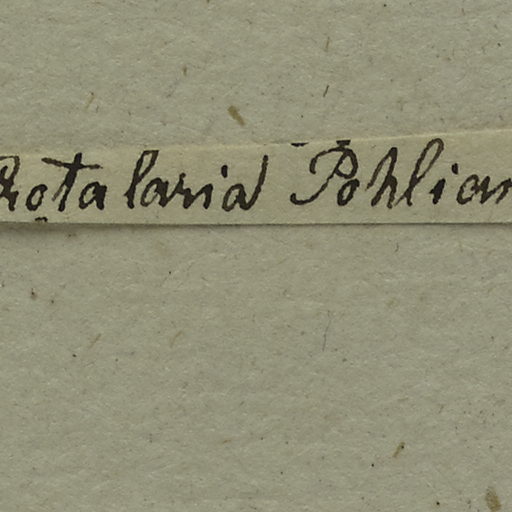 Crotalaria Pohlian